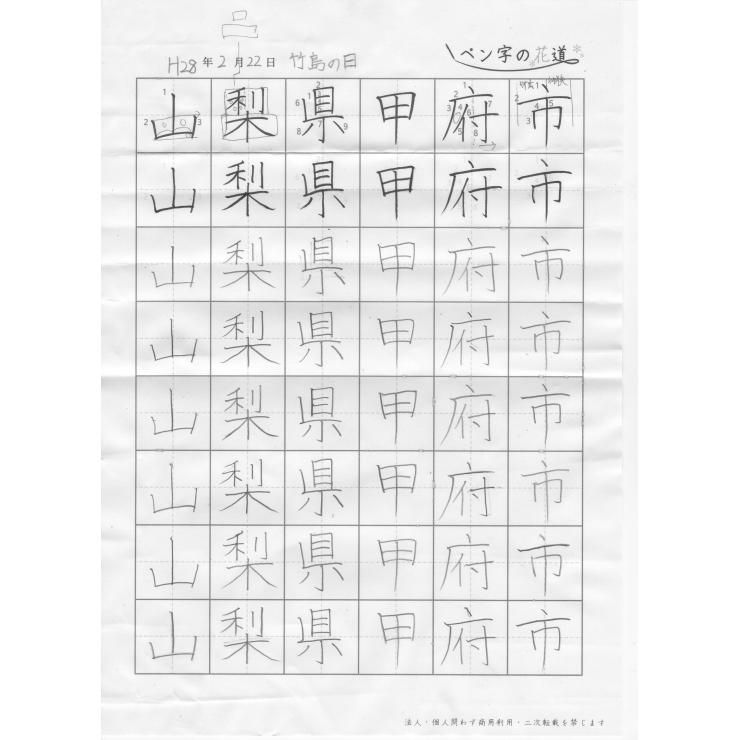 H28年2月22日 竹島の日
ペン字の花道
山梨県甲府市
山梨県甲府市
山梨県甲府市
山梨県甲府市
山梨県甲府市
山梨県甲府市
山梨県甲府市
山梨県甲府市
法人・個人問わず商用利用・二次転載を禁じます